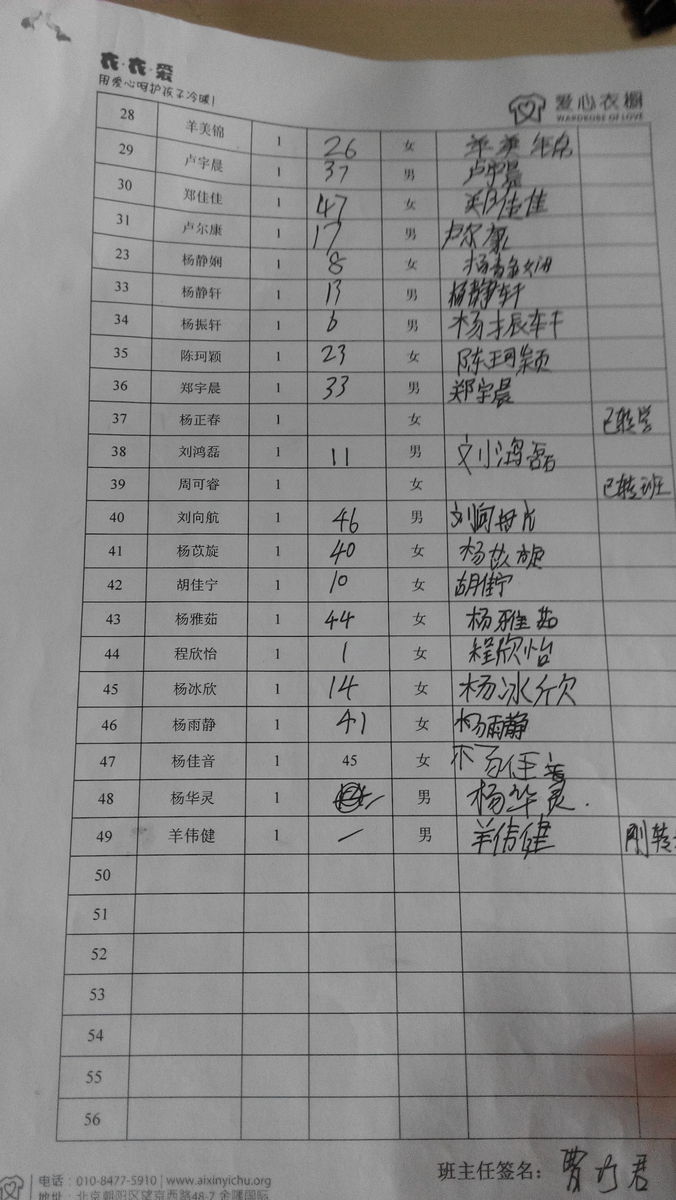 衣·衣·爱
用爱心呵护孩子冷暖！
爱心衣橱
WARDROBE OF LOVE
28 羊美锦 1 26 女
29 卢宇晨 1 37 男 卢宇晨
30 郑佳佳 1 47 女 郑佳佳
31 卢尔康 1 17 男 卢尔康
23 杨静娴 1 8 女 杨静娴
33 杨静轩 1 13 男 杨静轩
34 杨振轩 1 6 男 杨振轩
35 陈珂颖 1 23 女 陈珂颖
36 郑宇晨 1 33 男 郑宇晨
37 杨正春 1 女 已转学
38 刘鸿磊 1 11 男 刘鸿磊
39 周可睿 1 女 已转班
40 刘向航 1 46 男 刘向航
41 杨苡旋 1 40 女 杨苡旋
42 胡佳宁 1 10 女 胡佳宁
43 杨雅茹 1 44 女 杨雅茹
44 程欣怡 1 1 女 程欣怡
45 杨冰欣 1 14 女 杨冰欣
46 杨雨静 1 41 女 杨雨静
47 杨佳音 1 45 女 杨佳音
48 杨华灵 1 男 杨华灵.
49 羊伟健 1 — 男 羊伟健 刚转
50
51
52
53
54
55
56
班主任签名：
电话：010-8477-5910 | www.aixinyichu.org
地址：北京朝阳区望京西路48-7 金隅国际